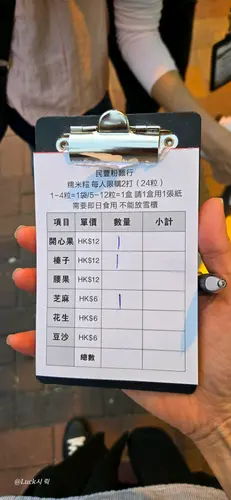 民豐粉麵行
糯米糍 每人限購2打（24粒）
1-4粒=1袋/5-12粒=1盒 請1盒用1張紙
需要即日食用 不能放雪櫃
項目 單價 數量 小計
開心果 HK$12 |
榛子 HK$12 |
腰果 HK$12
芝麻 HK$6 |
花生 HK$6
豆沙 HK$6
總數
@Luck시릭